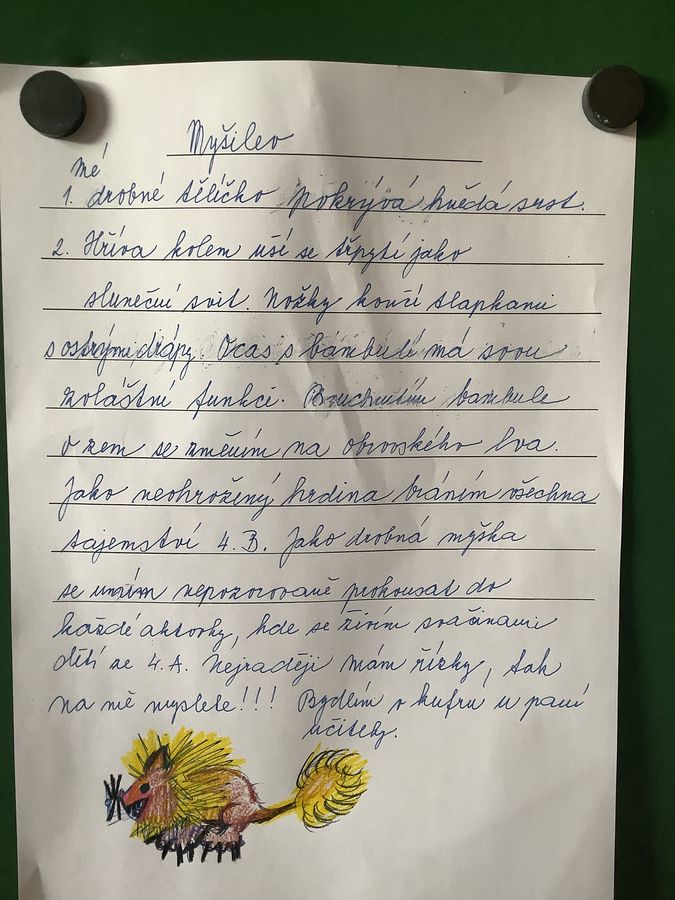 Myšilev
Mé
1. drobné tělíčko pokrývá hnědá srst.
2. Hříva kolem uší se třpytí jako
sluneční svit. Nožky končí tlapkami
s ostrými drápy. Ocas s bambulí má svou
zvláštní funkci. Bouchnutím bambule
o zem se změním na obrovského lva.
Jako neohrožený hrdina bráním všechna
tajemství 4. B. Jako drobná myška
se umím nepozorovaně prokousat do
každé aktovky, kde se živím svačinami
dětí ze 4. A. Nejraději mám řízky, tak
na mě myslete!!! Bydlím v kufru u paní
učitelky.